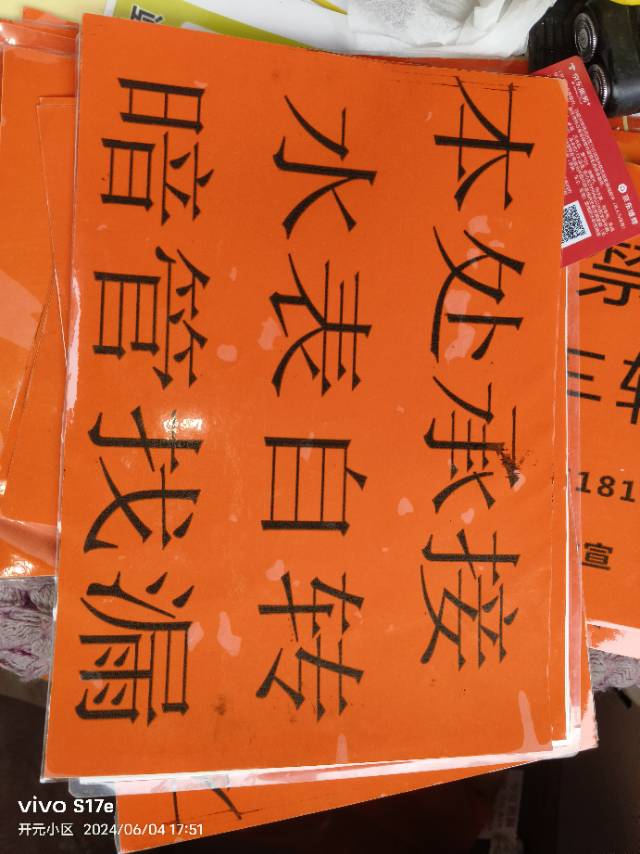 本处承接
水表自转
暗管找漏
三轮
181
宣
vivo S17e
开元小区 2024/06/04 17:51